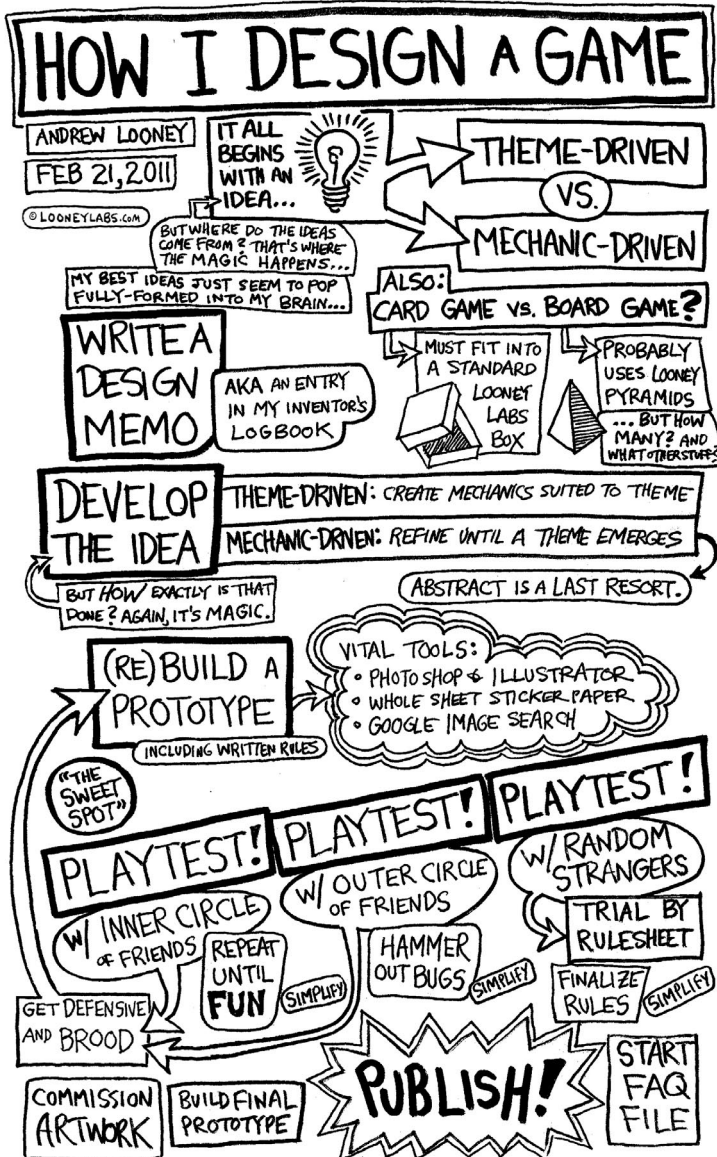 HOW I DESIGN A GAME
ANDREW LOONEY
FEB 21, 2011
© LOONEYLABS.COM
IT ALL
BEGINS
WITH AN
IDEA...
THEME-DRIVEN
VS.
MECHANIC-DRIVEN
BUT WHERE DO THE IDEAS
COME FROM? THAT'S WHERE
THE MAGIC HAPPENS...
MY BEST IDEAS JUST SEEM TO POP
FULLY-FORMED INTO MY BRAIN...
ALSO:
CARD GAME VS. BOARD GAME?
MUST FIT INTO
A STANDARD
LOONEY
LABS
BOX
PROBABLY
USES LOONEY
PYRAMIDS
... BUT HOW
MANY? AND
WHAT OTHER STUFF?
WRITE A
DESIGN
MEMO
AKA AN ENTRY
IN MY INVENTOR'S
LOGBOOK
DEVELOP
THE IDEA
THEME-DRIVEN: CREATE MECHANICS SUITED TO THEME
MECHANIC-DRIVEN: REFINE UNTIL A THEME EMERGES
ABSTRACT IS A LAST RESORT.
BUT HOW EXACTLY IS THAT
DONE? AGAIN, IT'S MAGIC.
(RE)BUILD A
PROTOTYPE
INCLUDING WRITTEN RULES
VITAL TOOLS:
• PHOTOSHOP & ILLUSTRATOR
• WHOLE SHEET STICKER PAPER
• GOOGLE IMAGE SEARCH
"THE
SWEET
SPOT"
PLAYTEST!
W/ INNER CIRCLE
OF FRIENDS
REPEAT
UNTIL
FUN
SIMPLIFY
PLAYTEST!
W/ OUTER CIRCLE
OF FRIENDS
HAMMER
OUT BUGS
SIMPLIFY
PLAYTEST!
W/ RANDOM
STRANGERS
TRIAL BY
RULESHEET
FINALIZE
RULES
SIMPLIFY
GET DEFENSIVE
AND BROOD
COMMISSION
ARTWORK
BUILD FINAL
PROTOTYPE
PUBLISH!
START
FAQ
FILE